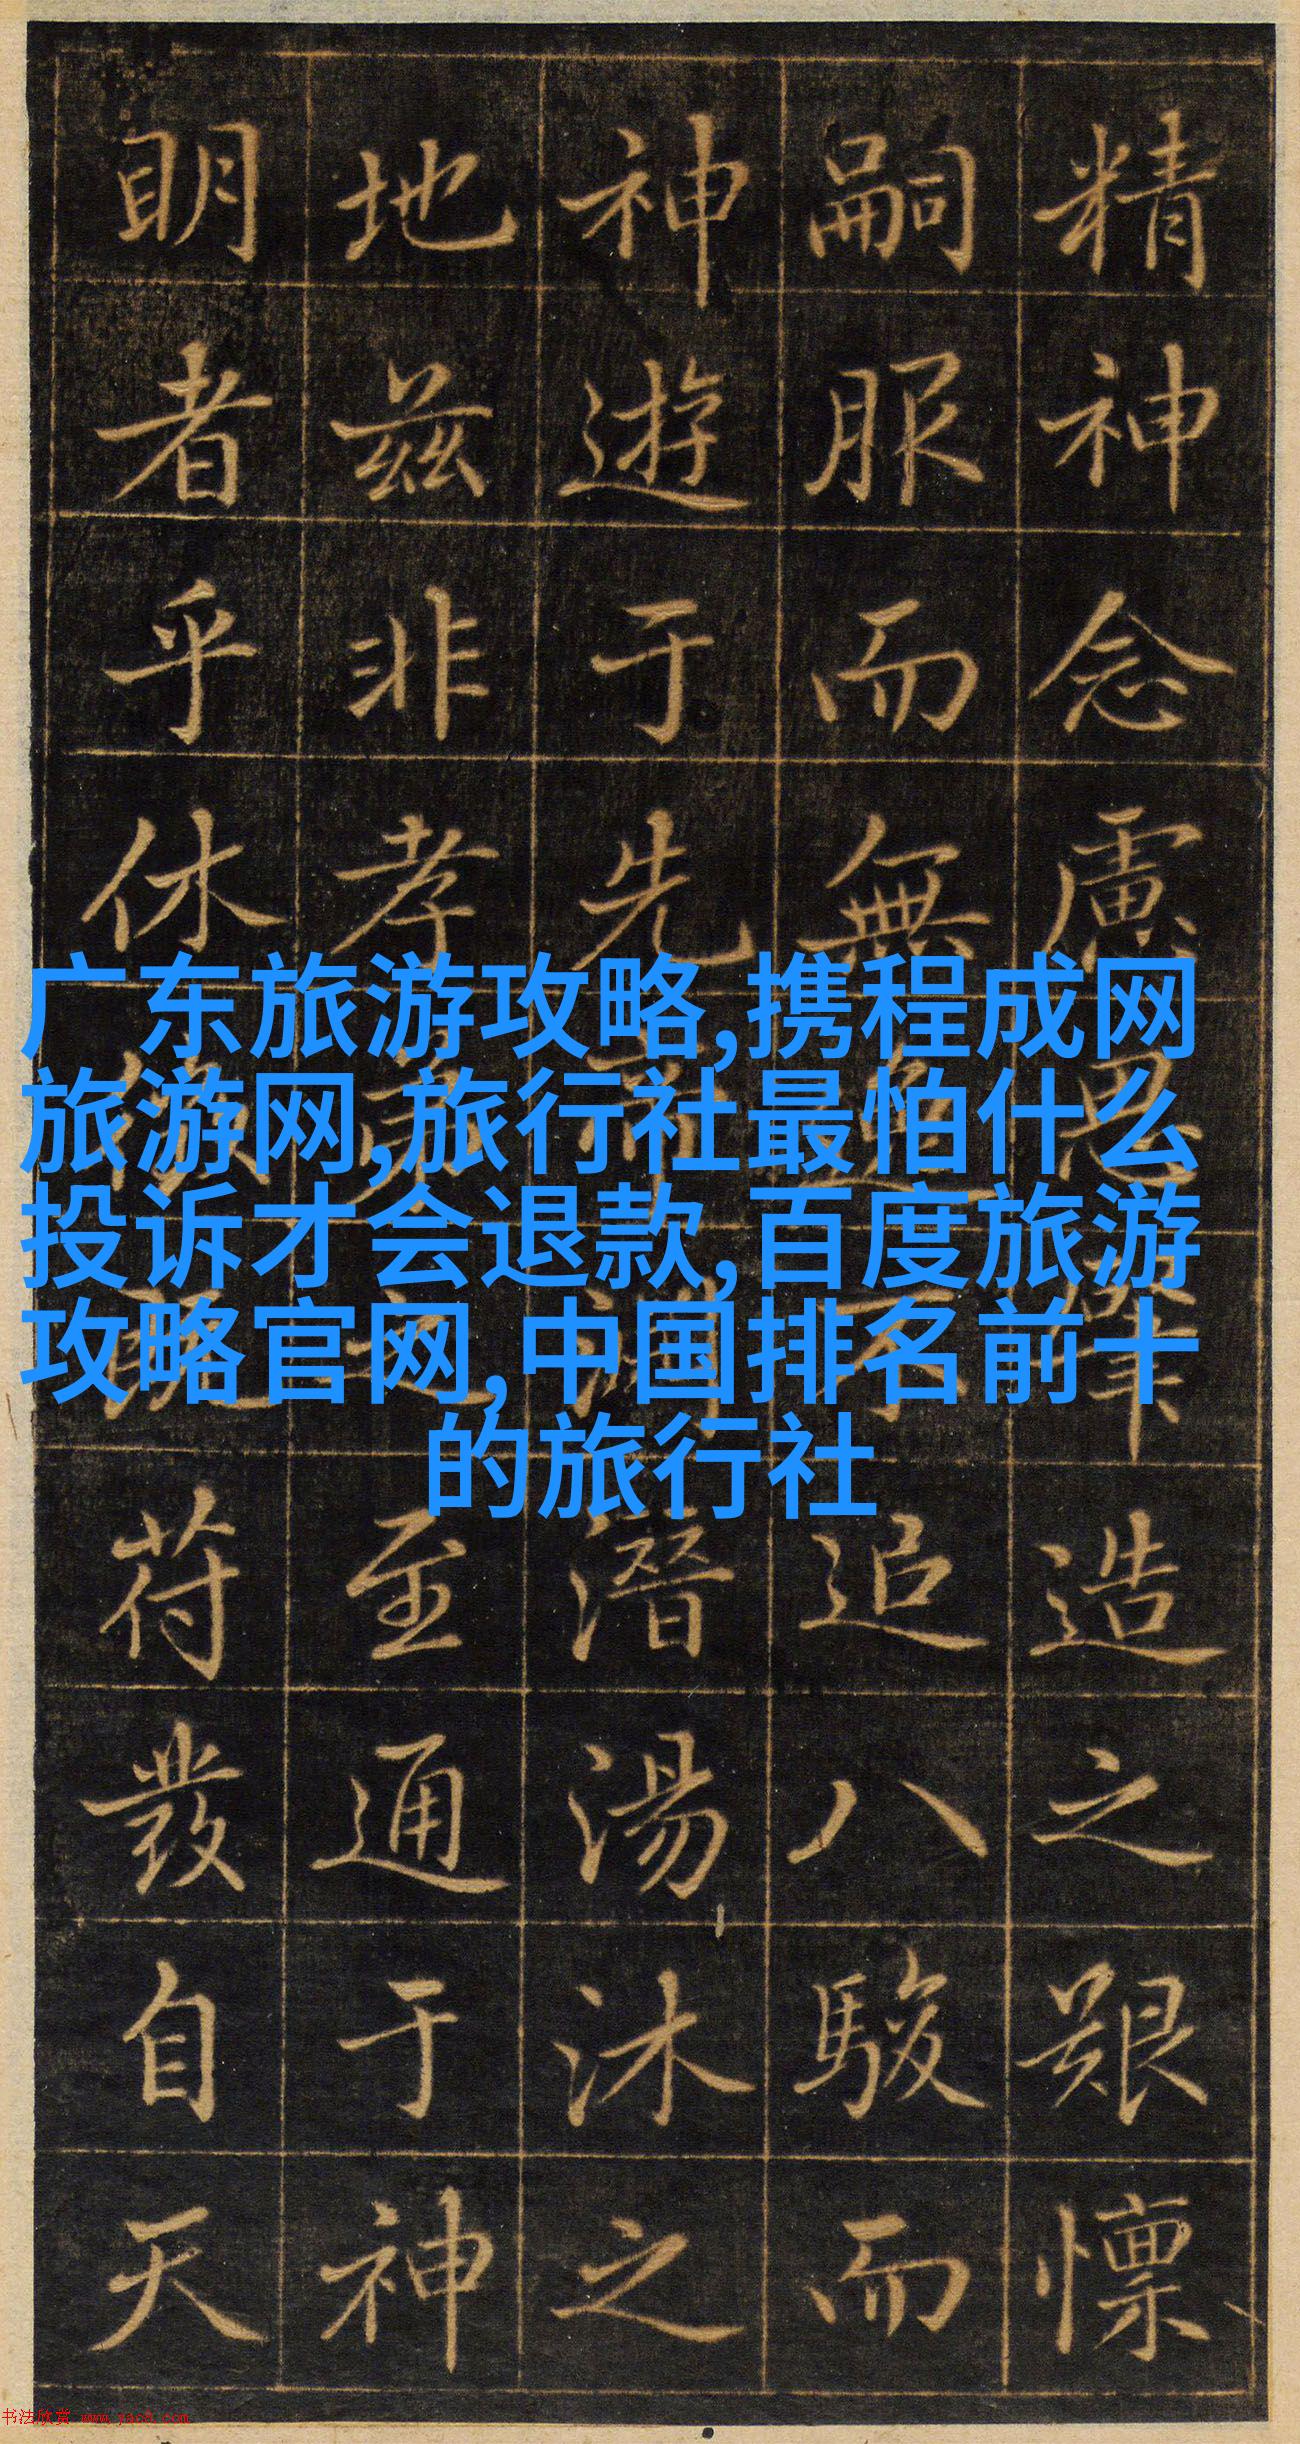 精神念慮思肇造之艱懍
嗣服而無追八駿而
神遊于先帝潛湯沐之
地茲非孝弟之至通于神
明者乎休苻發自天
广东旅游攻略,携程成网
旅游网,旅行社最怕什么
投诉才会退款,百度旅游
攻略官网,中国排名前十
的旅行社
书法欣赏 www.yac8.com